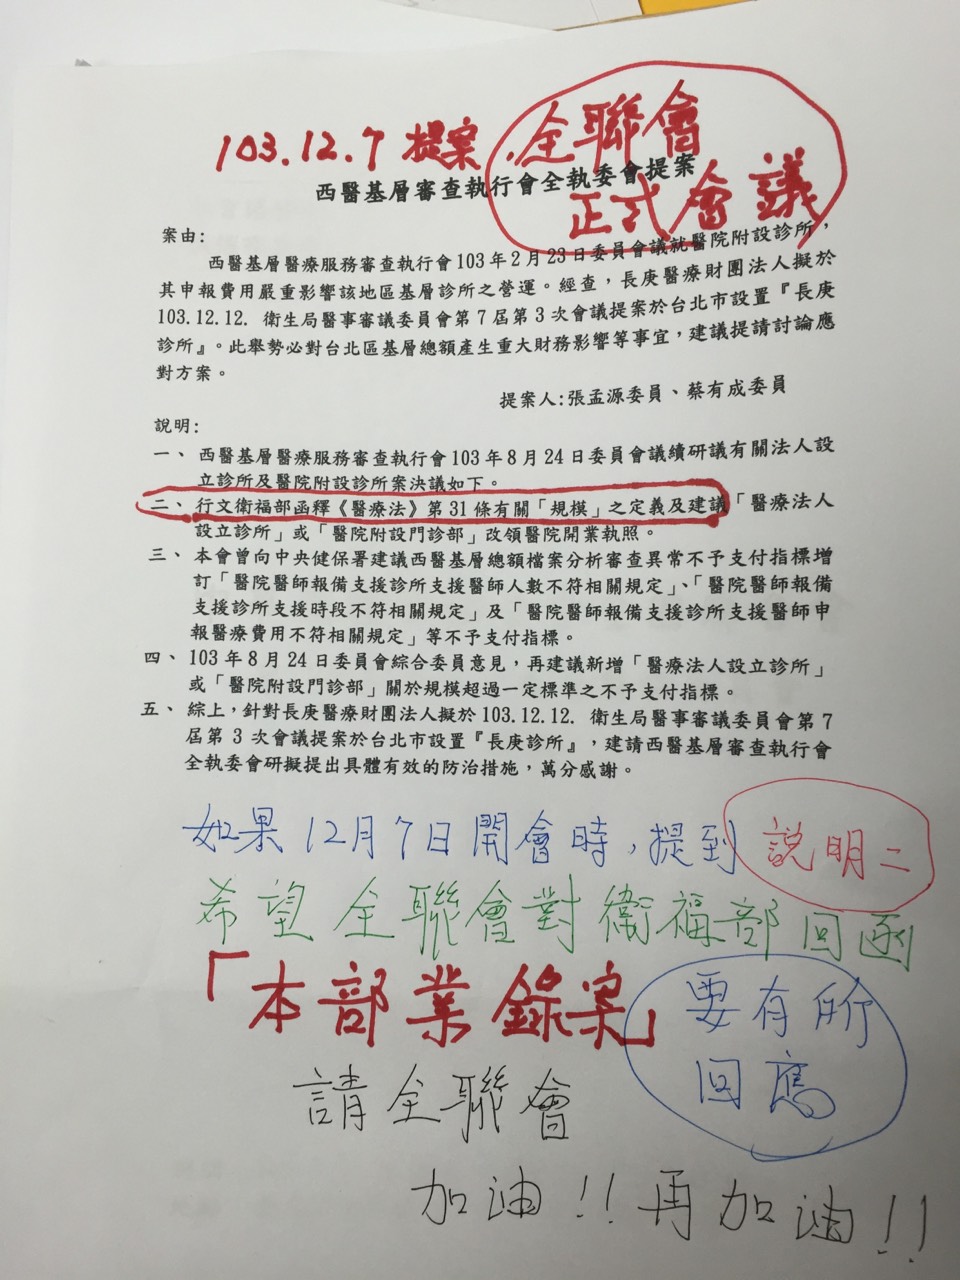 103.12.7 提案 全聯會
正式會議
西醫基層審查執行會全執委會提案
案由:
西醫基層醫療服務審查執行會 103 年 2 月 23 日委員會議就醫院附設診所，
其申報費用嚴重影響該地區基層診所之營運。經查，長庚醫療財團法人擬於
103.12.12. 衛生局醫事審議委員會第 7 屆第 3 次會議提案於台北市設置『長庚
診所』。此舉勢必對台北區基層總額產生重大財務影響等事宜，建議提請討論應
對方案。
提案人:張孟源委員、蔡有成委員
說明:
一、 西醫基層醫療服務審查執行會 103 年 8 月 24 日委員會議續研議有關法人設
立診所及醫院附設診所案決議如下。
二、 行文衛福部函釋《醫療法》第 31 條有關「規模」之定義及建議「醫療法人
設立診所」或「醫院附設門診部」改領醫院開業執照。
三、 本會曾向中央健保署建議西醫基層總額檔案分析審查異常不予支付指標增
訂「醫院醫師報備支援診所支援醫師人數不符相關規定」、「醫院醫師報備
支援診所支援時段不符相關規定」及「醫院醫師報備支援診所支援醫師申
報醫療費用不符相關規定」等不予支付指標。
四、 103 年 8 月 24 日委員會綜合委員意見，再建議新增「醫療法人設立診所」
或「醫院附設門診部」關於規模超過一定標準之不予支付指標。
五、 綜上，針對長庚醫療財團法人擬於 103.12.12. 衛生局醫事審議委員會第 7
屆第 3 次會議提案於台北市設置『長庚診所』，建請西醫基層審查執行會
全執委會研擬提出具體有效的防治措施，萬分感謝。
如果 12月7日開會時，提到 說明二
希望全聯會對衛福部回函
「本部業錄案」 要有所
回應
請全聯會
加油!! 再加油!!